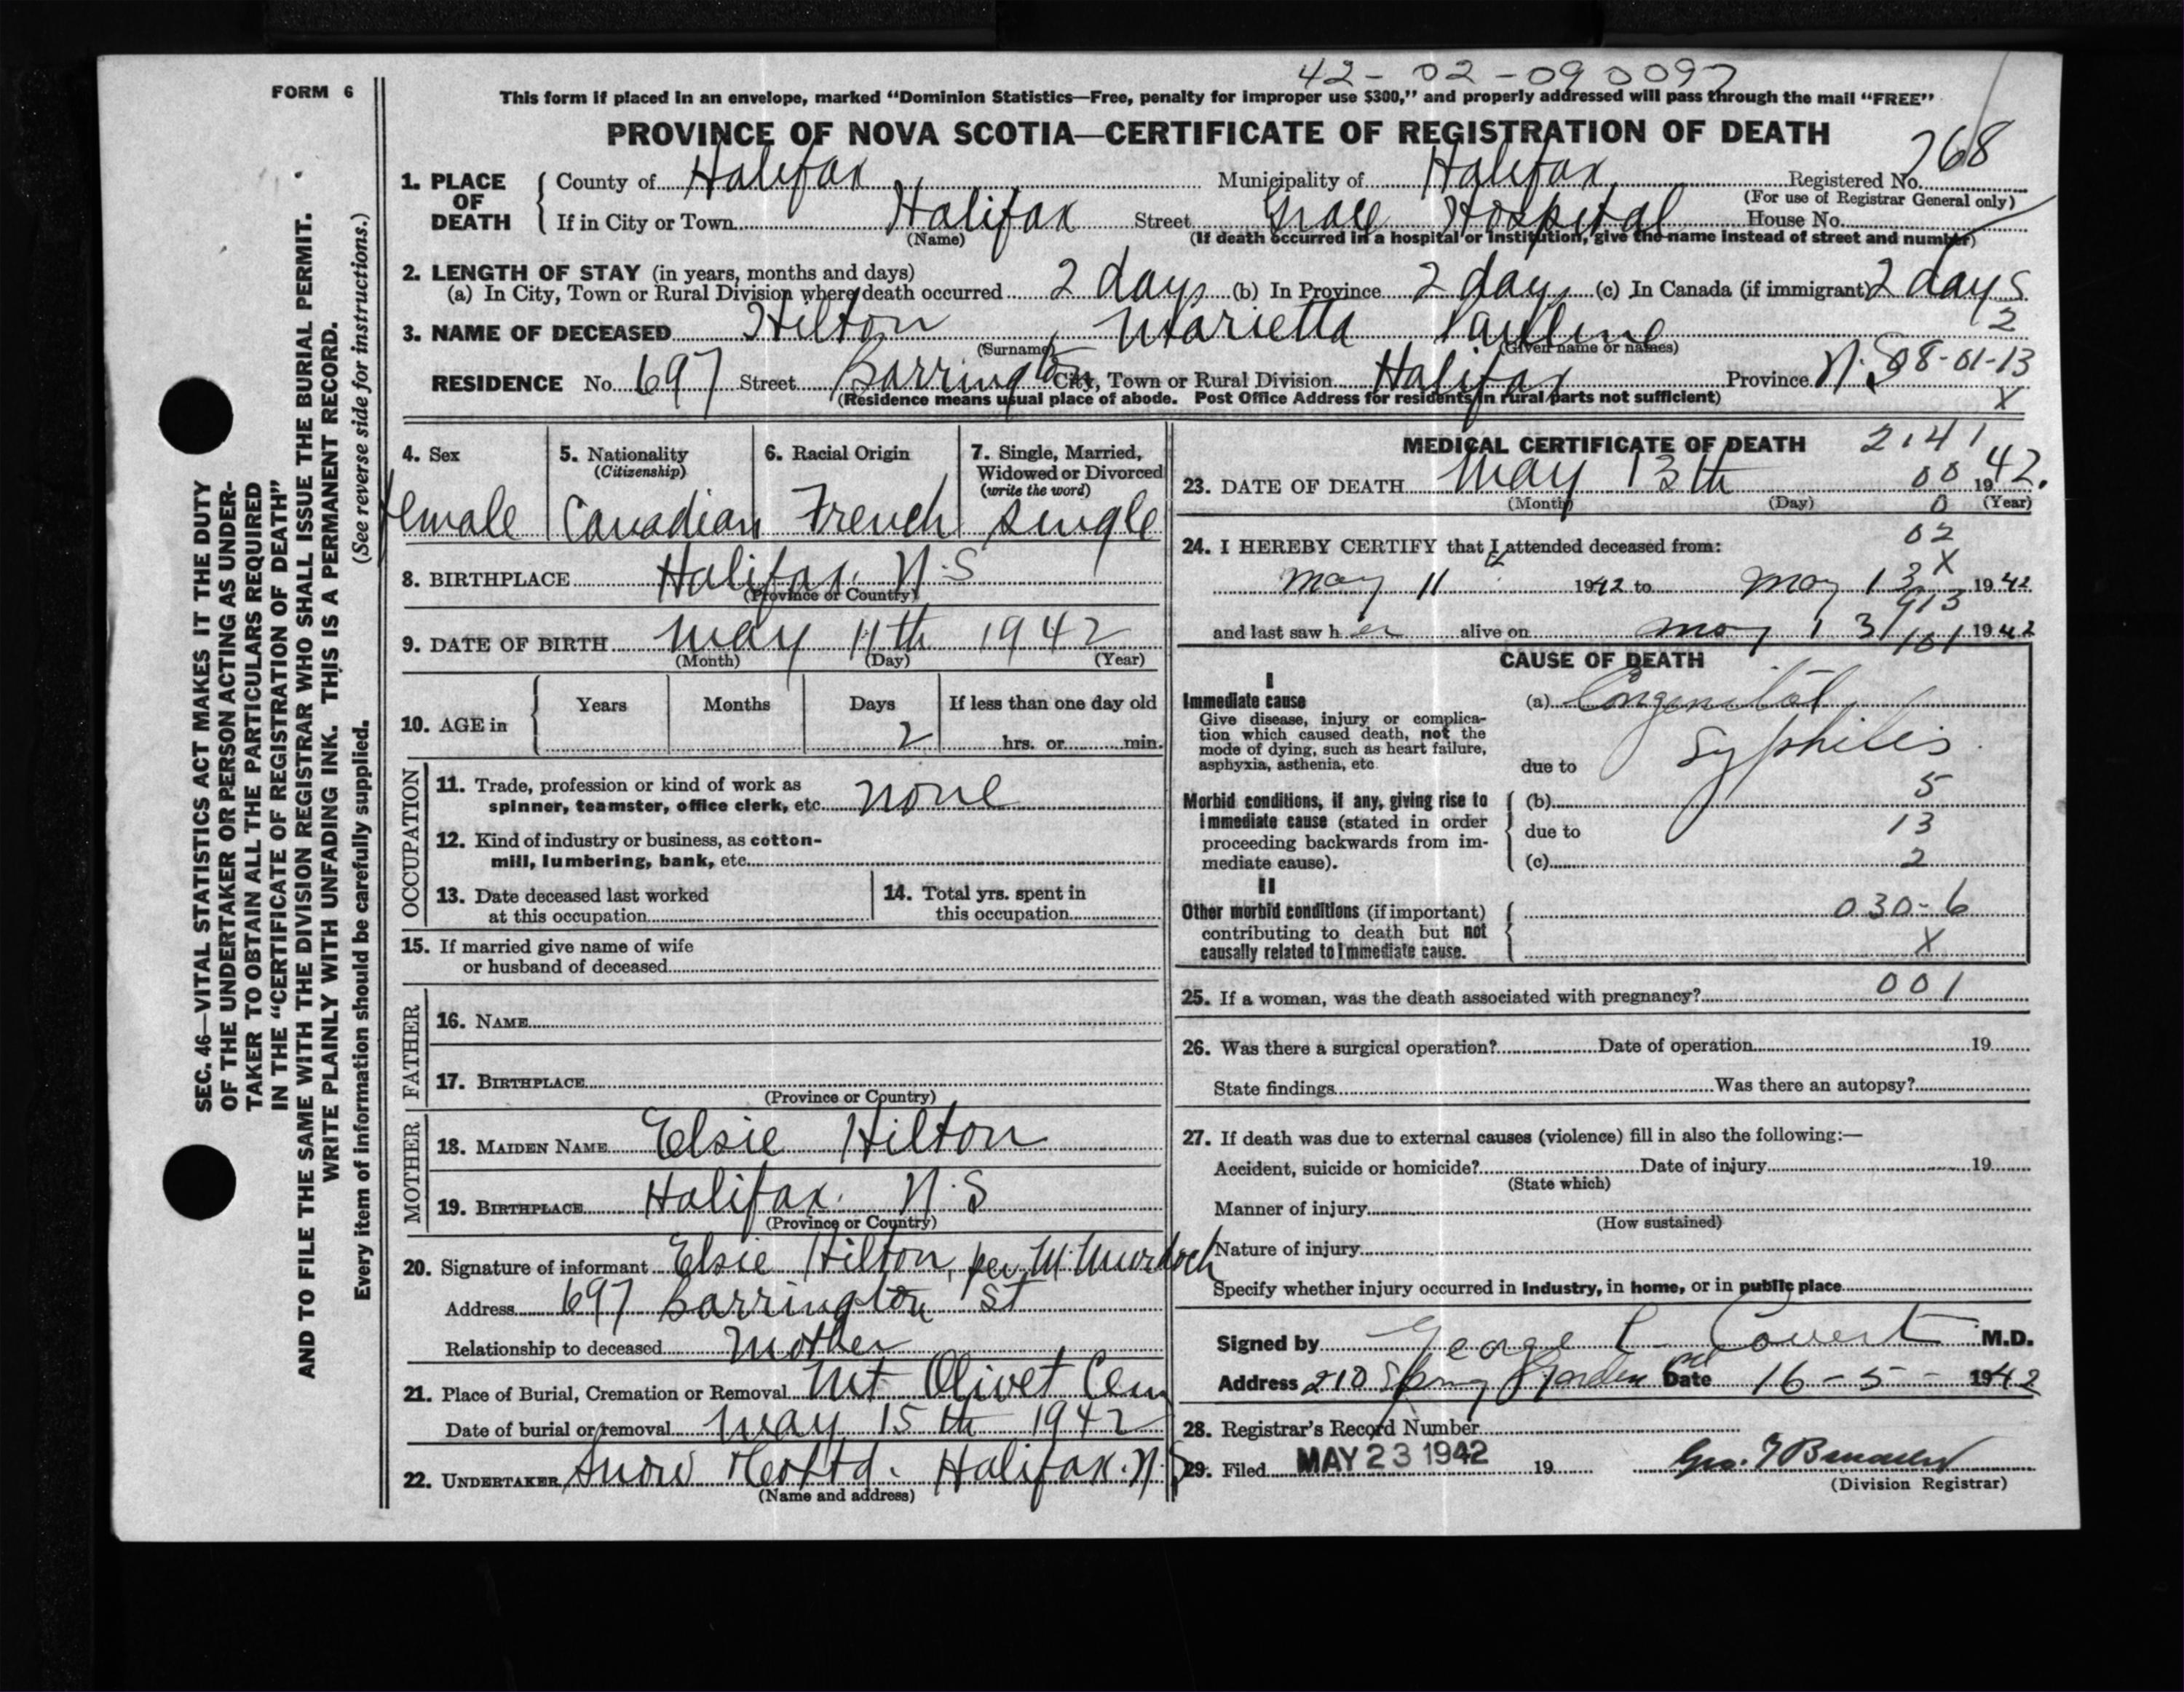 42-02-090097
FORM 6
This form if placed in an envelope, marked “Dominion Statistics—Free, penalty for improper use $300,” and properly addressed will pass through the mail “FREE”
PROVINCE OF NOVA SCOTIA—CERTIFICATE OF REGISTRATION OF DEATH
768
1. PLACE OF DEATH County of Halifax Municipality of Halifax Registered No.
(For use of Registrar General only)
If in City or Town Halifax Street Grace Hospital House No.
(Name) (If death occurred in a hospital or institution, give the name instead of street and number)
2. LENGTH OF STAY (in years, months and days)
(a) In City, Town or Rural Division where death occurred 2 days (b) In Province 2 days (c) In Canada (if immigrant) 2 days
3. NAME OF DECEASED Hilton, Marietta Pauline 2
(Surname) (Given name or names)
RESIDENCE No. 697 Street Barrington City, Town or Rural Division Halifax Province N.S 08-01-13
(Residence means usual place of abode. Post Office Address for residents in rural parts not sufficient) X
4. Sex 5. Nationality 6. Racial Origin 7. Single, Married,
(Citizenship) Widowed or Divorced
(write the word)
Female Canadian French single
8. BIRTHPLACE Halifax. N.S
(Province or Country)
9. DATE OF BIRTH May 11th 1942
(Month) (Day) (Year)
10. AGE in Years Months Days If less than one day old
2 hrs. or min.
OCCUPATION
11. Trade, profession or kind of work as
spinner, teamster, office clerk, etc. none
12. Kind of industry or business, as cotton-
mill, lumbering, bank, etc.
13. Date deceased last worked 14. Total yrs. spent in
at this occupation this occupation
15. If married give name of wife
or husband of deceased
FATHER
16. NAME
17. BIRTHPLACE
(Province or Country)
MOTHER
18. MAIDEN NAME Elsie Hilton
19. BIRTHPLACE Halifax. N.S
(Province or Country)
20. Signature of informant Elsie Hilton, per M. Murdoch
Address 697 Barrington St
Relationship to deceased Mother
21. Place of Burial, Cremation or Removal Mt Olivet Cem
Date of burial or removal May 15th 1942
22. UNDERTAKER Snow & Co Ltd. Halifax. N.S
(Name and address)
MEDICAL CERTIFICATE OF DEATH 2141
23. DATE OF DEATH May 13th 00 1942.
(Month) (Day) 0 (Year)
02
24. I HEREBY CERTIFY that I attended deceased from:
X
May 11 1942 to May 13 1942
913
and last saw her alive on May 13 1942
161
CAUSE OF DEATH
I
Immediate cause (a) Congenital
Give disease, injury or complica-
tion which caused death, not the
mode of dying, such as heart failure,
asphyxia, asthenia, etc. due to Syphilis
5
Morbid conditions, if any, giving rise to (b)
immediate cause (stated in order due to 13
proceeding backwards from im-
mediate cause). (c) 2
II
Other morbid conditions (if important) 030-6
contributing to death but not
causally related to immediate cause. X
25. If a woman, was the death associated with pregnancy? 001
26. Was there a surgical operation? Date of operation 19
State findings Was there an autopsy?
27. If death was due to external causes (violence) fill in also the following:—
Accident, suicide or homicide? Date of injury 19
(State which)
Manner of injury
(How sustained)
Nature of injury
Specify whether injury occurred in industry, in home, or in public place
Signed by George L Covert M.D.
Address 210 Spring Garden Rd Date 16-5- 1942
28. Registrar's Record Number
29. Filed MAY 23 1942 19
(Division Registrar)
SEC. 46—VITAL STATISTICS ACT MAKES IT THE DUTY
OF THE UNDERTAKER OR PERSON ACTING AS UNDER-
TAKER TO OBTAIN ALL THE PARTICULARS REQUIRED
IN THE “CERTIFICATE OF REGISTRATION OF DEATH”
AND TO FILE THE SAME WITH THE DIVISION REGISTRAR WHO SHALL ISSUE THE BURIAL PERMIT.
WRITE PLAINLY WITH UNFADING INK. THIS IS A PERMANENT RECORD.
Every item of information should be carefully supplied. (See reverse side for instructions.)